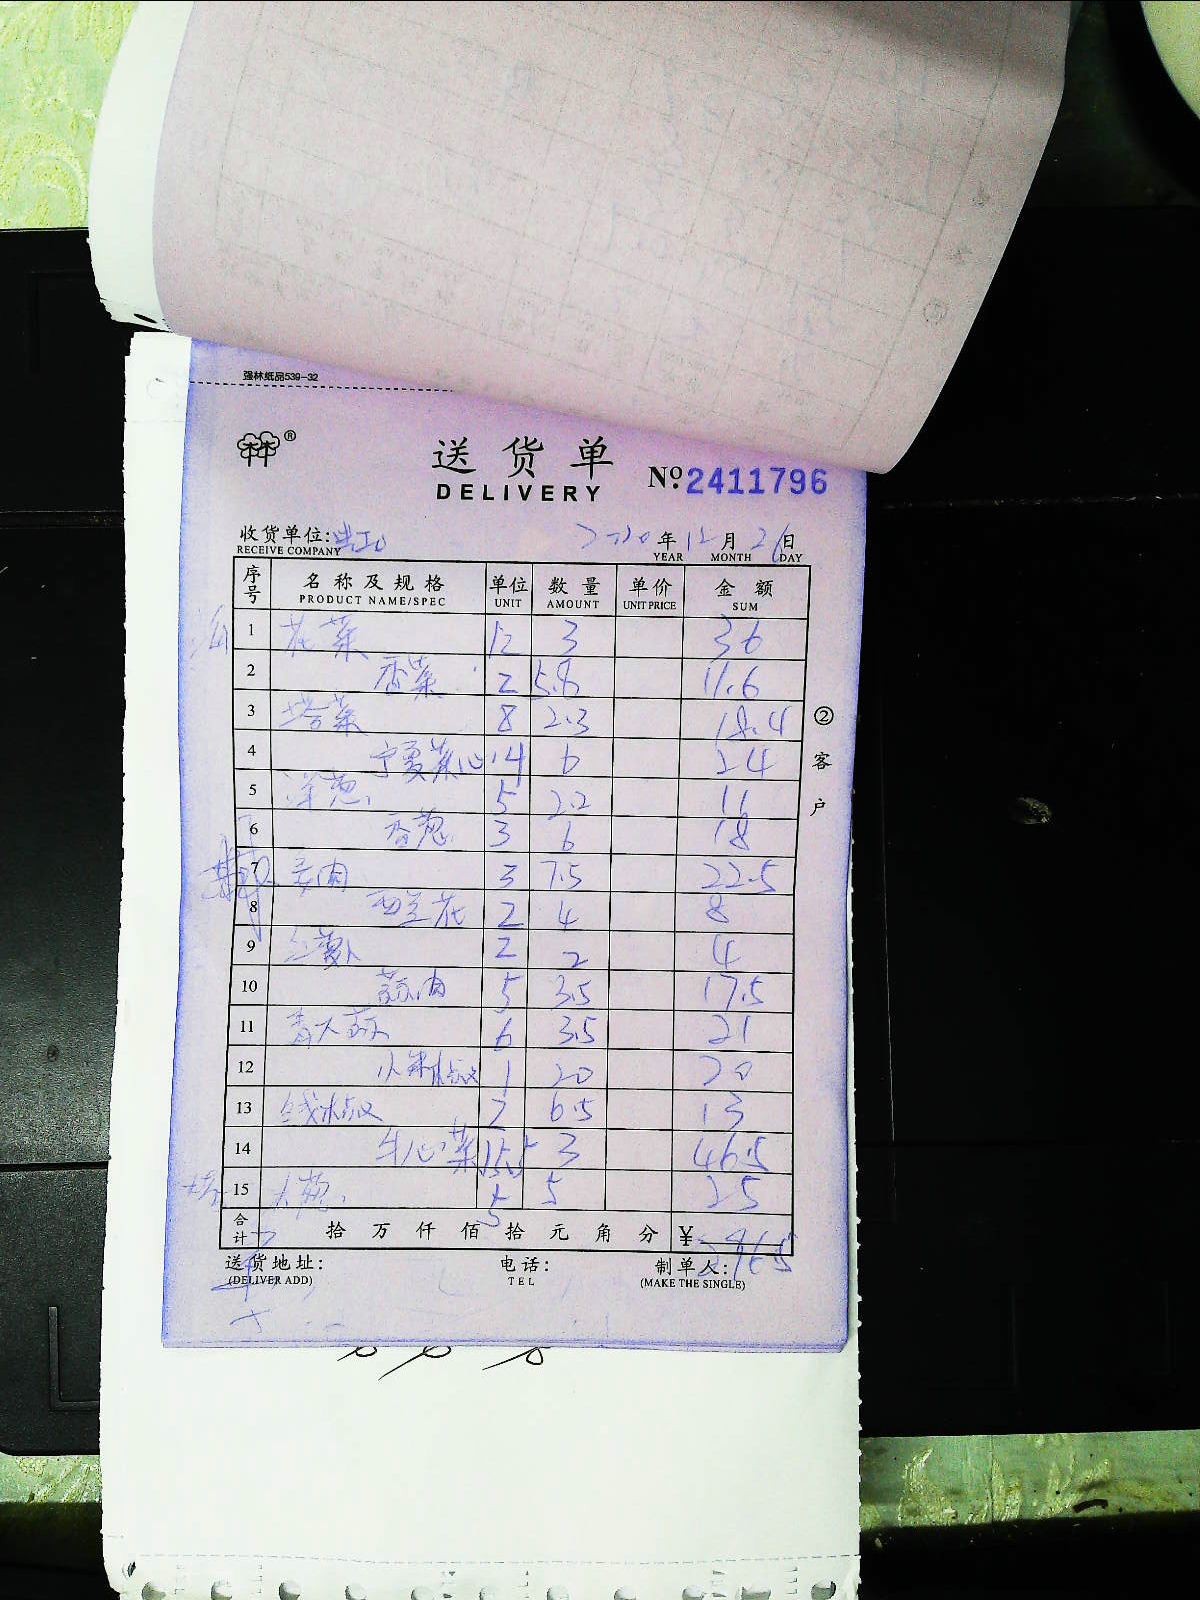 强林纸品539-32
®
送货单
DELIVERY
№ 2411796
收货单位:
RECEIVE COMPANY
2020年12月26日
YEAR MONTH DAY
序号 名称及规格 单位 数量 单价 金额
PRODUCT NAME/SPEC UNIT AMOUNT UNIT PRICE SUM
1 花菜 12 3 36
2 香菜 2 5.8 11.6
3 塔菜 8 2.3 18.4
4 宁夏菜心 4 6 24
5 洋葱 5 2.2 11
6 香葱 3 6 18
7 姜肉 3 7.5 22.5
8 西兰花 2 4 8
9 红萝卜 2 2 4
10 蒜肉 5 3.5 17.5
11 青大蒜 6 3.5 21
12 小米椒 1 20 20
13 线椒 2 6.5 13
14 牛心菜 15.5 3 46.5
15 大葱 5 5 25
合计 拾万仟佰拾元角分 ¥ 296.5
送货地址: 电话: 制单人:
(DELIVER ADD) TEL (MAKE THE SINGLE)
②客户